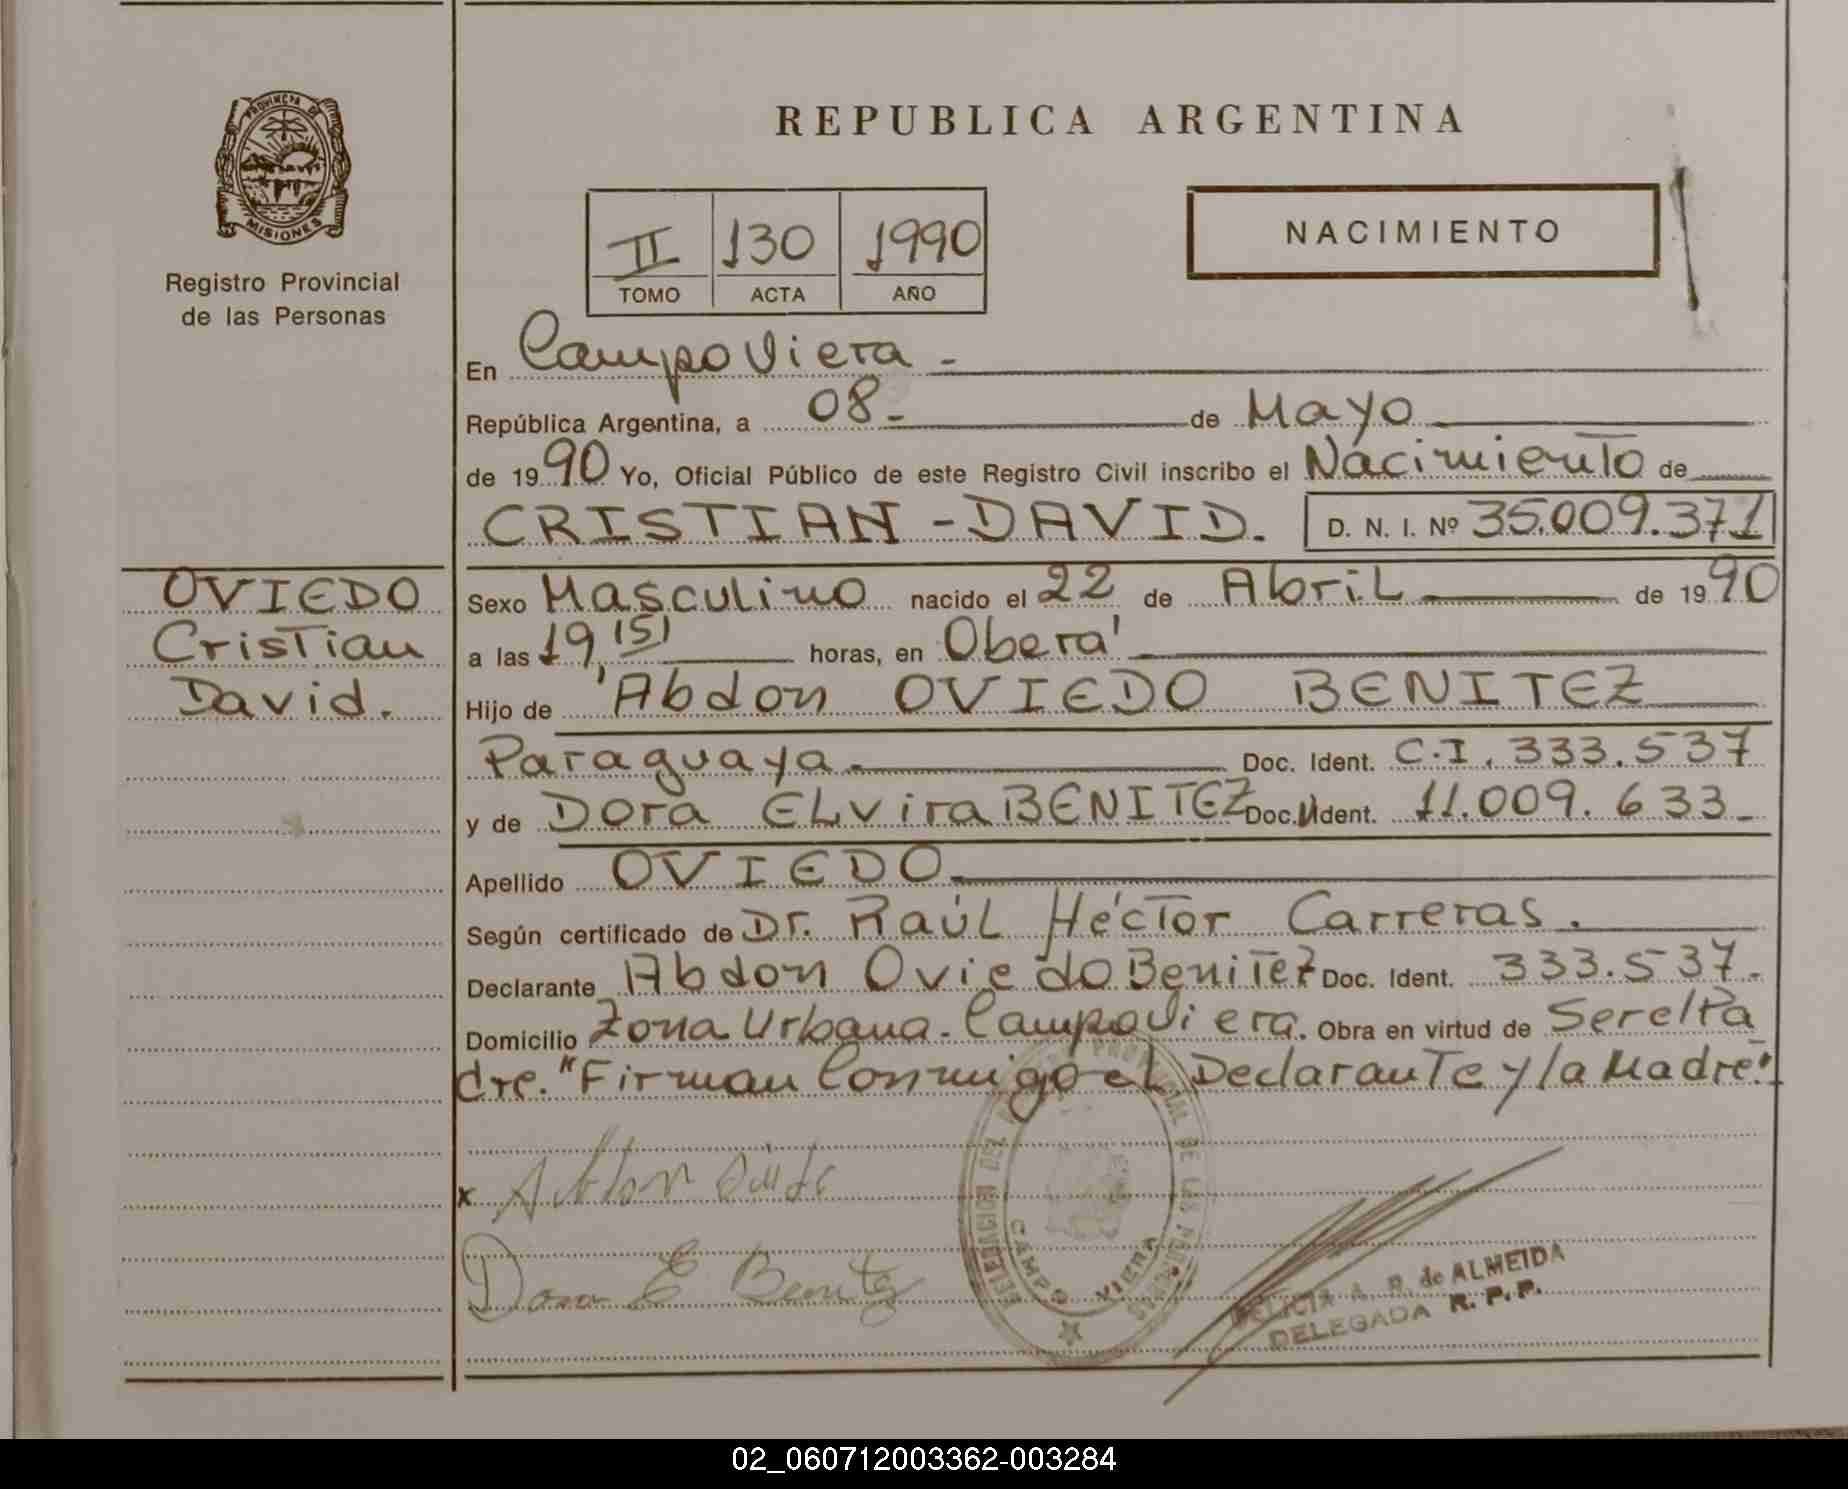 PROVINCIA DE
MISIONES
Registro Provincial
de las Personas
OVIEDO
Cristian
David.
REPUBLICA ARGENTINA
II 130 1990
TOMO ACTA AÑO
NACIMIENTO
En Campo Viera -
República Argentina, a 08- de Mayo
de 1990 Yo, Oficial Público de este Registro Civil inscribo el Nacimiento de
CRISTIAN - DAVID. D. N. I. Nº 35.009.371
Sexo Masculino nacido el 22 de Abril de 1990
a las 19,15 horas, en Oberá
Hijo de Abdon OVIEDO BENITEZ
Paraguaya Doc. Ident. C.I. 333.537
y de Dora ELvira BENITEZ Doc. Ident. 11.009.633-
Apellido OVIEDO
Según certificado de Dr. Raúl Héctor Carreras.
Declarante Abdon Oviedo Benitez Doc. Ident. 333.537.
Domicilio Zona Urbana - Campo Viera. Obra en virtud de Ser el Pa
dre. "Firman Conmigo el Declarante y la Madre"
x
Dora E Benitez
CAMPO VIERA
DE LAS
FELICIA A. R. de ALMEIDA
DELEGADA R. P. P.
02_060712003362-003284